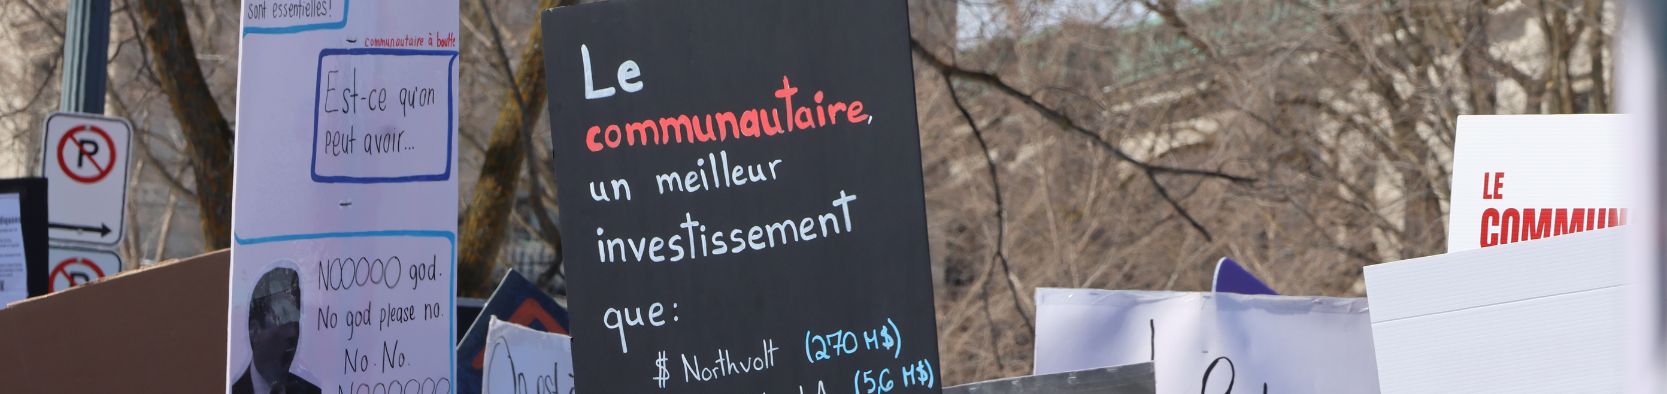 sont essentielles!
communautaire à boutte
Est-ce qu'on
peut avoir...
NOOOOO god.
No god please no.
No. No.
NOOOOOOO
Le
communautaire,
un meilleur
investissement
que:
$ Northvolt (270 M$)
(5,6 M$)
P
P
LE
COMMUN